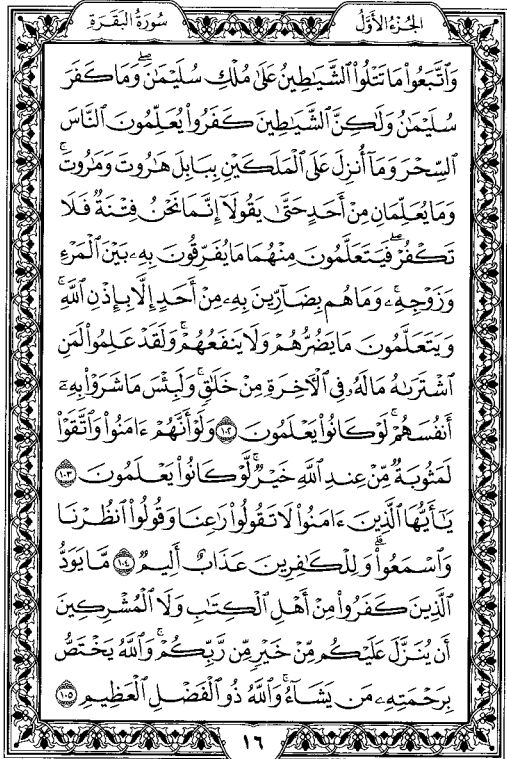 الجزء الأول سورة البقرة
وَٱتَّبَعُوا۟ مَا تَتْلُوا۟ ٱلشَّيَـٰطِينُ عَلَىٰ مُلْكِ سُلَيْمَـٰنَ ۖ وَمَا كَفَرَ
سُلَيْمَـٰنُ وَلَـٰكِنَّ ٱلشَّيَـٰطِينَ كَفَرُوا۟ يُعَلِّمُونَ ٱلنَّاسَ
ٱلسِّحْرَ وَمَآ أُنزِلَ عَلَى ٱلْمَلَكَيْنِ بِبَابِلَ هَـٰرُوتَ وَمَـٰرُوتَ ۚ
وَمَا يُعَلِّمَانِ مِنْ أَحَدٍ حَتَّىٰ يَقُولَآ إِنَّمَا نَحْنُ فِتْنَةٌ فَلَا
تَكْفُرْ ۖ فَيَتَعَلَّمُونَ مِنْهُمَا مَا يُفَرِّقُونَ بِهِۦ بَيْنَ ٱلْمَرْءِ
وَزَوْجِهِۦ ۚ وَمَا هُم بِضَآرِّينَ بِهِۦ مِنْ أَحَدٍ إِلَّا بِإِذْنِ ٱللَّهِ ۚ
وَيَتَعَلَّمُونَ مَا يَضُرُّهُمْ وَلَا يَنفَعُهُمْ ۚ وَلَقَدْ عَلِمُوا۟ لَمَنِ
ٱشْتَرَىٰهُ مَا لَهُۥ فِى ٱلْـَٔاخِرَةِ مِنْ خَلَـٰقٍ ۚ وَلَبِئْسَ مَا شَرَوْا۟ بِهِۦٓ
أَنفُسَهُمْ ۚ لَوْ كَانُوا۟ يَعْلَمُونَ ١٠٢ وَلَوْ أَنَّهُمْ ءَامَنُوا۟ وَٱتَّقَوْا۟
لَمَثُوبَةٌ مِّنْ عِندِ ٱللَّهِ خَيْرٌ ۖ لَّوْ كَانُوا۟ يَعْلَمُونَ ١٠٣
يَـٰٓأَيُّهَا ٱلَّذِينَ ءَامَنُوا۟ لَا تَقُولُوا۟ رَٰعِنَا وَقُولُوا۟ ٱنظُرْنَا
وَٱسْمَعُوا۟ ۗ وَلِلْكَـٰفِرِينَ عَذَابٌ أَلِيمٌ ١٠٤ مَّا يَوَدُّ
ٱلَّذِينَ كَفَرُوا۟ مِنْ أَهْلِ ٱلْكِتَـٰبِ وَلَا ٱلْمُشْرِكِينَ
أَن يُنَزَّلَ عَلَيْكُم مِّنْ خَيْرٍ مِّن رَّبِّكُمْ ۗ وَٱللَّهُ يَخْتَصُّ
بِرَحْمَتِهِۦ مَن يَشَآءُ ۚ وَٱللَّهُ ذُو ٱلْفَضْلِ ٱلْعَظِيمِ ١٠٥
١٦